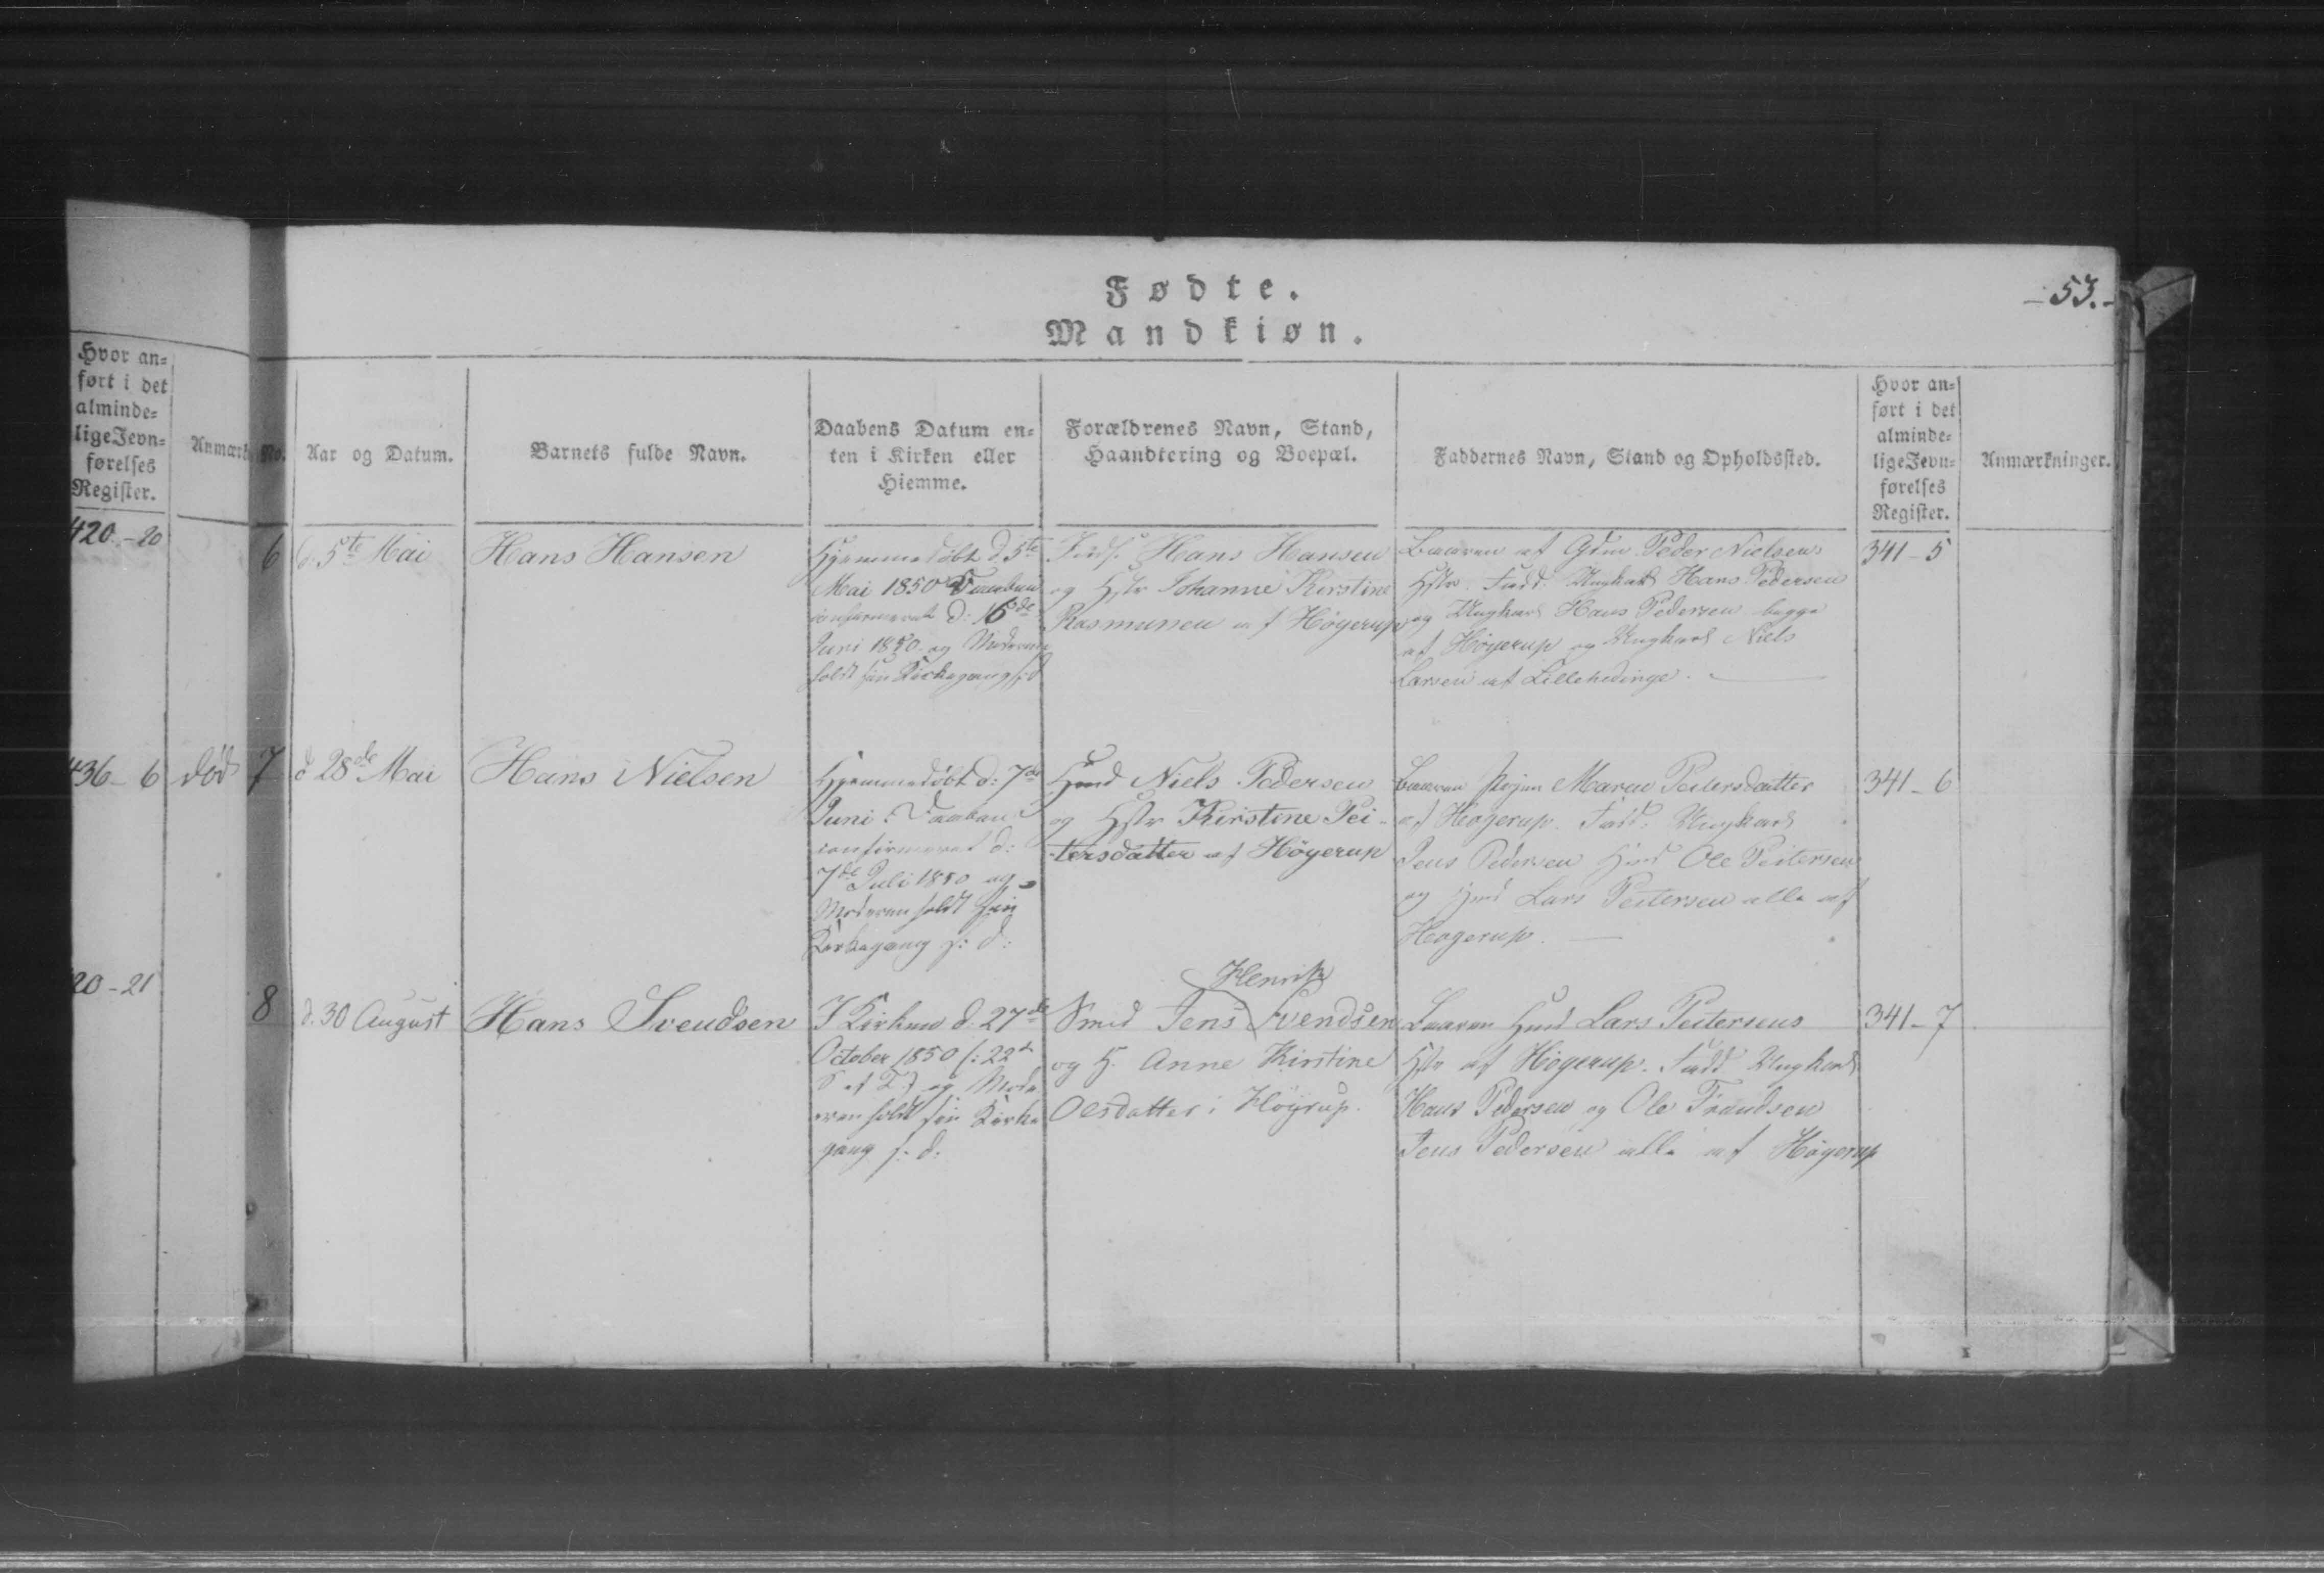 Fødte.
Mandkiøn.
-53.-
Hvor an=
ført i det
alminde=
lige Jevn=
førelses
Register.
Anmærk
No.
Aar og Datum.
Barnets fulde Navn.
Daabens Datum en=
ten i Kirken eller
Hiemme.
Forældrenes Navn, Stand,
Haandtering og Boepæl.
Faddernes Navn, Stand og Opholdssted.
Hvor an=
ført i det
alminde=
lige Jevn=
førelses
Register.
Anmærkninger.
420-20
6
d. 5te Mai
Hans Hansen
Hjemmedøbt d. 5te
Mai 1850 Daaben
confirmeret d: 16de
Juni 1850 og Moderen
holdt sin Kirkegang s: d
Hans Hansen
og Hstr Johanne Kirstine
Rasmusen af Höyerup
Baaren af Gdm Peder Nielsens
Hstr. Fadd: Ungkarl Hans Pedersen
og Ungkarl Hans Pedersen begge
af Höyerup og Ungkarl Niels
Larsen af Lillehedinge.
341-5
436-6
død
7
d 28de Mai
Hans Nielsen
Hjemmedøbt d: 7de
Juni. Daaben
confirmeret d:
7de Juli 1850 og
Moderen holdt sin
Kirkegang s: d:
Hmd Niels Pedersen
og Hstr Kirstine Pei-
-tersdatter af Höyerup
Baaren Pigen Maren Peitersdatter
af Høgerup. Fadd: Ungkarl
Jens Pedersen Hmd Ole Peitersen
og Hmd Lars Peitersen alle af
Høgerup.
341-6
20-21
8
d. 30 August
Hans Svendsen
I Kirken d. 27de
October 1850 (: 22d
S ef T.) og Mode
eren holdt sin Kirke
gang s: d:
Henrik
Smed Jens Svendsen
og H. Anne Kirstine
Olsdatter i Höyrup.
Baaren Hmd Lars Peitersens
Hstr af Høgerup. Fadd Ungkarl
Hans Pedersen og Ole Frandsen
Jens Pedersen alle af Høgerup
341-7